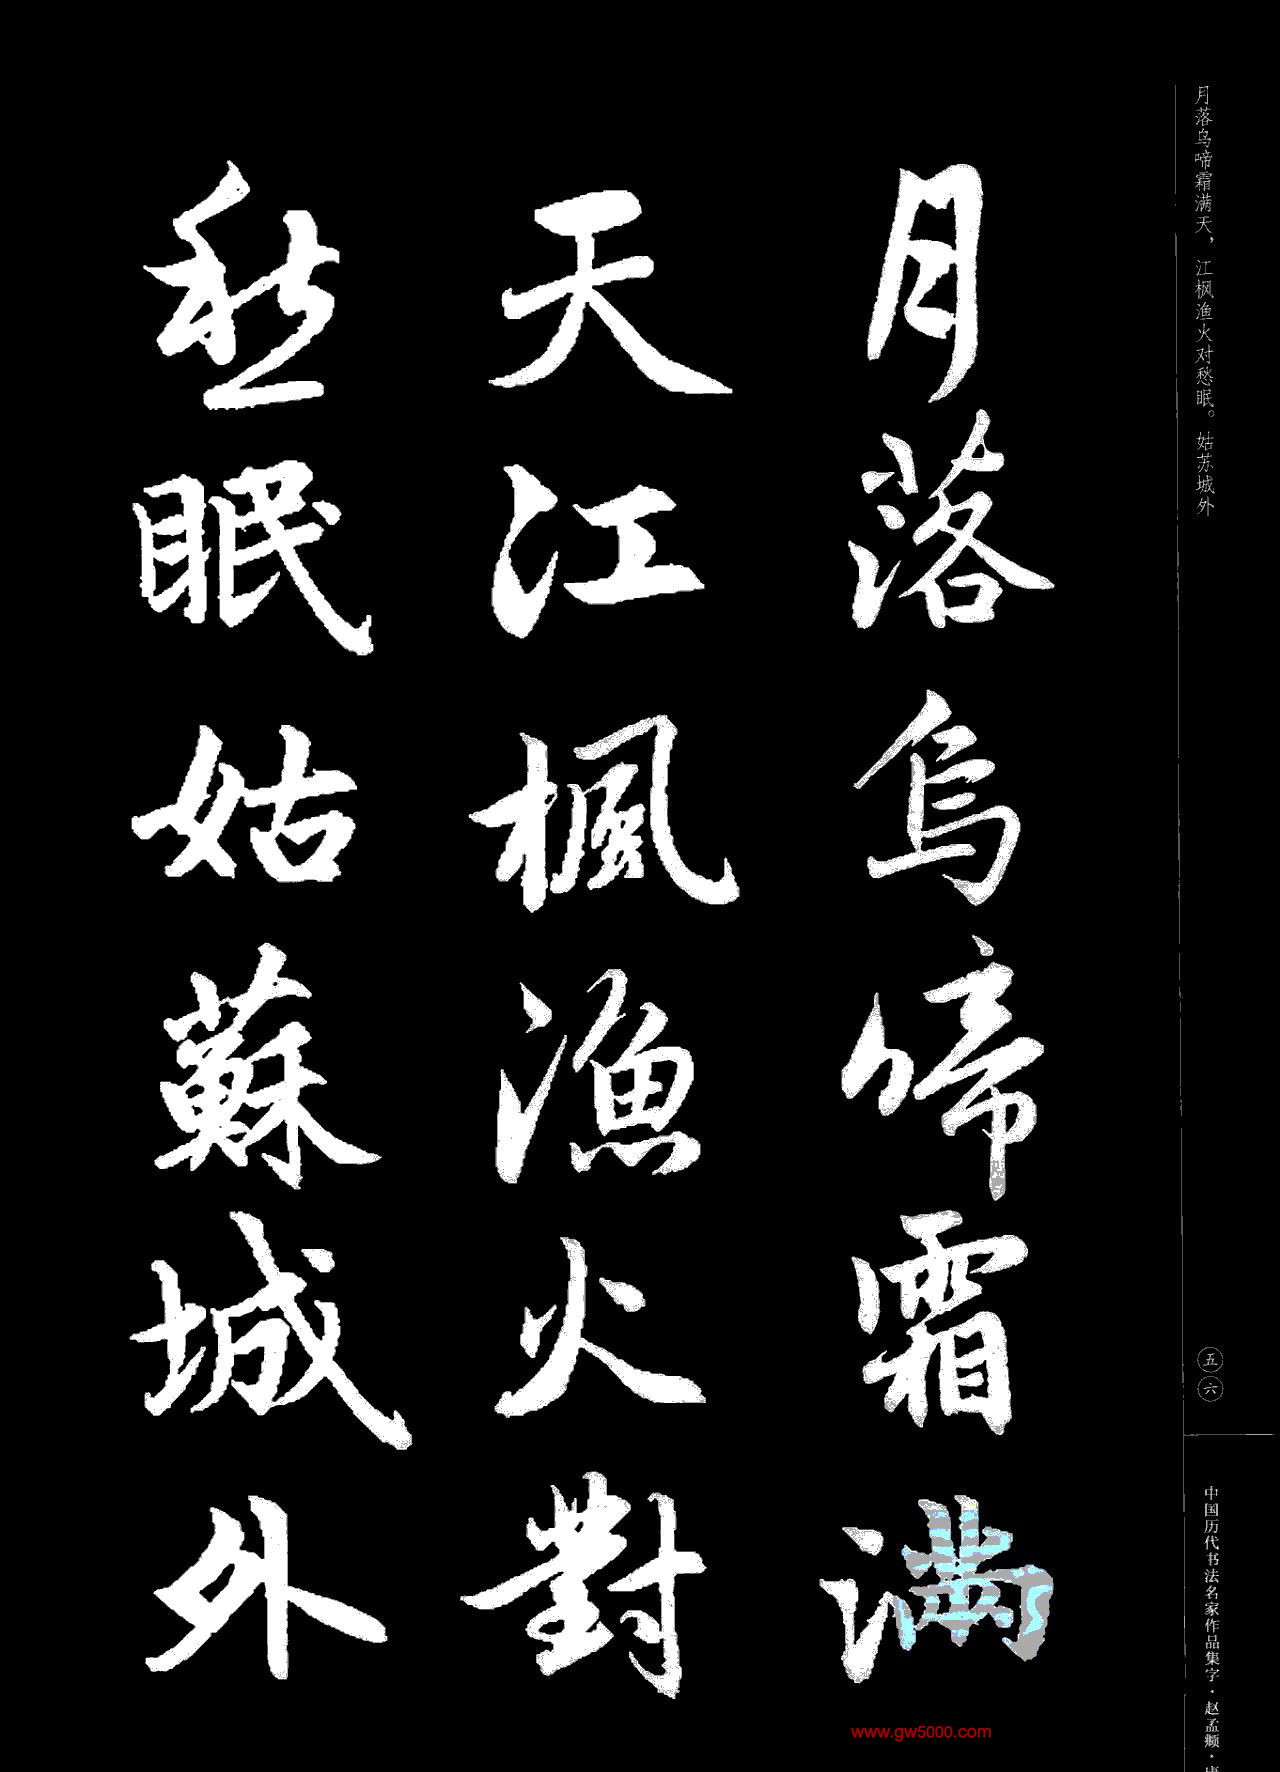 月落乌啼霜满天，江枫渔火对愁眠。姑苏城外
五六
中国历代书法名家作品集字·赵孟頫·
月落烏啼霜滿
天江楓漁火對
愁眠姑蘇城外
www.gw5000.com